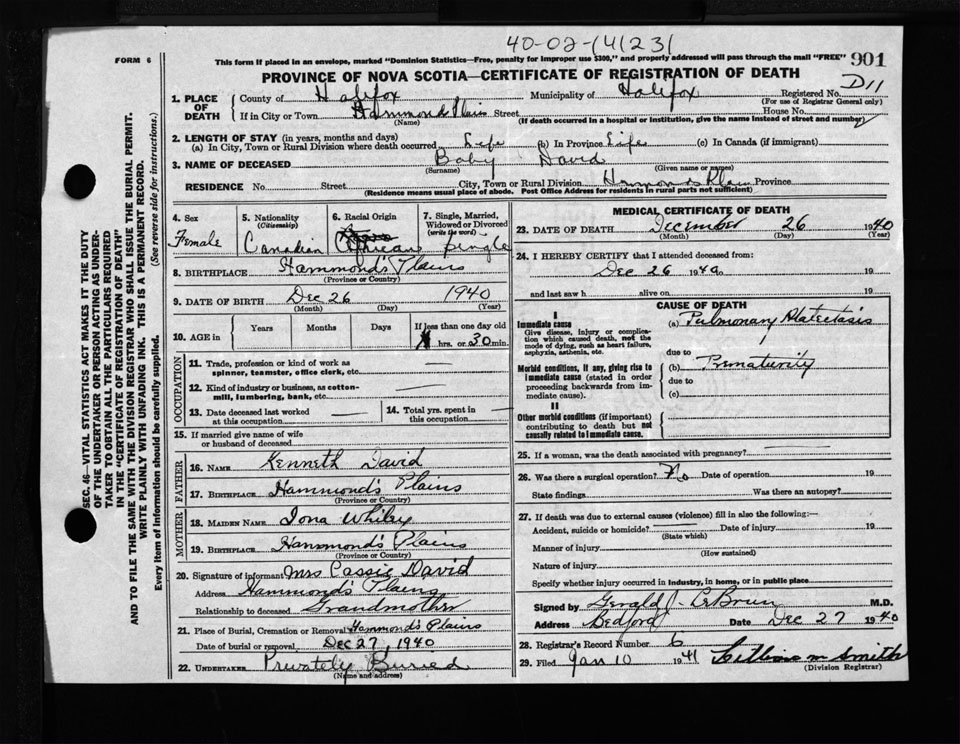 40-02-141231
FORM 6
This form if placed in an envelope, marked "Dominion Statistics—Free, penalty for improper use $300," and properly addressed will pass through the mail "FREE"
901
PROVINCE OF NOVA SCOTIA—CERTIFICATE OF REGISTRATION OF DEATH
D11
1. PLACE OF DEATH
County of Halifax Municipality of Halifax Registered No.
(For use of Registrar General only)
If in City or Town Hammonds Plains Street House No.
(Name) (If death occurred in a hospital or institution, give the name instead of street and number)
2. LENGTH OF STAY (in years, months and days)
(a) In City, Town or Rural Division where death occurred Life (b) In Province Life (c) In Canada (if immigrant)
3. NAME OF DECEASED Baby David
(Surname) (Given name or names)
RESIDENCE No. Street City, Town or Rural Division Hammonds Plain Province
(Residence means usual place of abode. Post Office Address for residents in rural parts not sufficient)
4. Sex
Female
5. Nationality
(Citizenship)
Canadian
6. Racial Origin
7. Single, Married, Widowed or Divorced
(write the word)
Single
8. BIRTHPLACE Hammond's Plains
(Province or Country)
9. DATE OF BIRTH Dec 26 1940
(Month) (Day) (Year)
10. AGE in
Years Months Days If less than one day old
hrs. or 30 min.
OCCUPATION
11. Trade, profession or kind of work as
spinner, teamster, office clerk, etc.
12. Kind of industry or business, as cotton-
mill, lumbering, bank, etc.
13. Date deceased last worked
at this occupation
14. Total yrs. spent in
this occupation
15. If married give name of wife
or husband of deceased
FATHER
16. NAME Kenneth David
17. BIRTHPLACE Hammond's Plains
(Province or Country)
MOTHER
18. MAIDEN NAME Iona Whiley
19. BIRTHPLACE Hammond's Plains
(Province or Country)
20. Signature of informant Mrs Cassie David
Address Hammond's Plains
Relationship to deceased Grandmother
21. Place of Burial, Cremation or Removal Hammond's Plains
Date of burial or removal Dec 27, 1940
22. UNDERTAKER Privately Buried
(Name and address)
MEDICAL CERTIFICATE OF DEATH
23. DATE OF DEATH December 26 1940
(Month) (Day) (Year)
24. I HEREBY CERTIFY that I attended deceased from:
Dec 26 1940 19
and last saw h alive on 19
CAUSE OF DEATH
I
Immediate cause
Give disease, injury or complica-
tion which caused death, not the
mode of dying, such as heart failure,
asphyxia, asthenia, etc.
(a) Pulmonary Atelectasis
due to
Morbid conditions, if any, giving rise to
immediate cause (stated in order
proceeding backwards from im-
mediate cause).
(b) Prematurity
due to
(c)
II
Other morbid conditions (if important)
contributing to death but not
causally related to immediate cause.
25. If a woman, was the death associated with pregnancy?
26. Was there a surgical operation? No Date of operation 19
State findings Was there an autopsy?
27. If death was due to external causes (violence) fill in also the following:—
Accident, suicide or homicide? Date of injury 19
(State which)
Manner of injury
(How sustained)
Nature of injury
Specify whether injury occurred in industry, in home, or in public place
Signed by Gerald J. LeBrun M.D.
Address Bedford Date Dec 27 1940
28. Registrar's Record Number 6
29. Filed Jan 10 1941 Lillian M Smith
(Division Registrar)
SEC. 46—VITAL STATISTICS ACT MAKES IT THE DUTY
OF THE UNDERTAKER OR PERSON ACTING AS UNDER-
TAKER TO OBTAIN ALL THE PARTICULARS REQUIRED
IN THE "CERTIFICATE OF REGISTRATION OF DEATH"
AND TO FILE THE SAME WITH THE DIVISION REGISTRAR WHO SHALL ISSUE THE BURIAL PERMIT.
WRITE PLAINLY WITH UNFADING INK. THIS IS A PERMANENT RECORD.
Every item of Information should be carefully supplied. (See reverse side for instructions.)